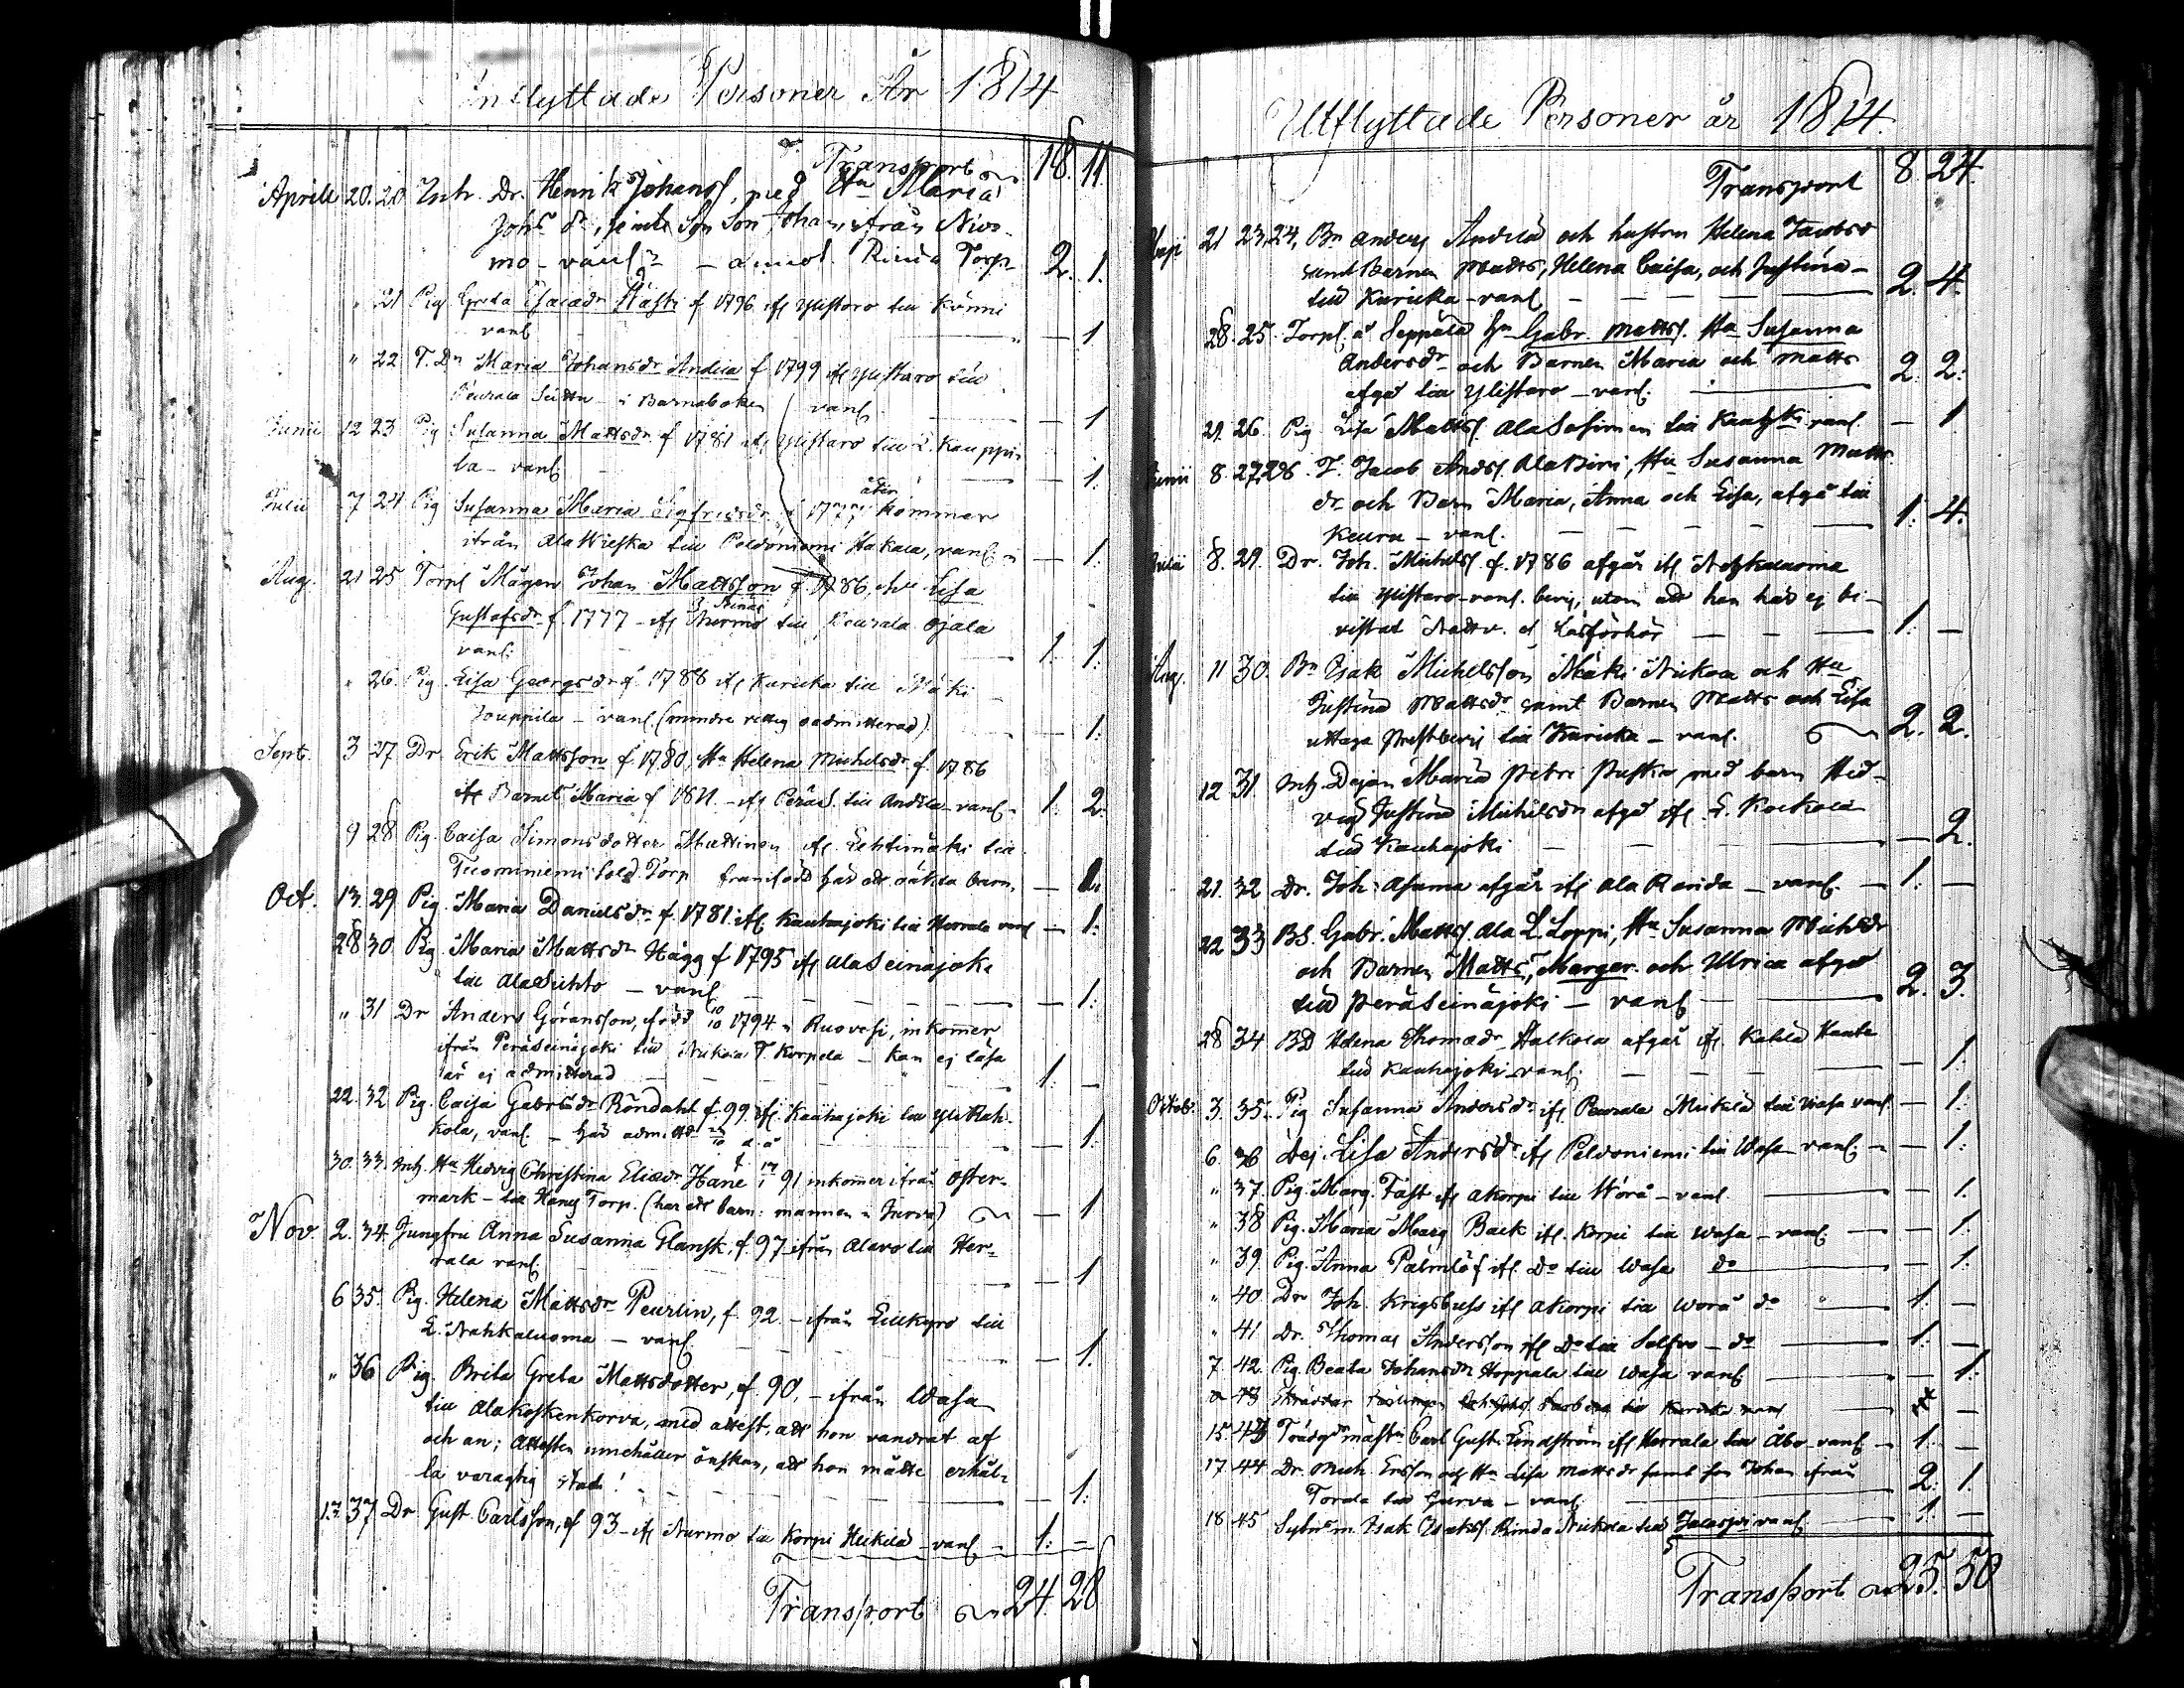 Inflyttade Personer År 1814
Transport 18. 11
Aprill 20. 20 Inh. Dr. Henrik Johanss. med Hu Maria
Johs dr, jemte Son Johan, från
mo - vanl. Torp 2. 1.
" 21 Pig Greta f 1796 ifr Ylistaro till Könni
vanl - 1
" 22 T. Dr Maria Johansdr Andila f 1799 ifr Ylistaro till
Peurala i Barnaboken vanl. - 1
Junii 12 23 Pig Susanna Mattsdr f 1781 ifr Ylistaro till L. Kauppi-
la - vanl. - 1.
Julii 7 24 Pig Susanna Maria Sigfridsdr f 1777 åter kommer
ifrån Ala till Peldoniemi Hakala, vanl. - 1.
Aug. 21 25 Torp. Mågen Johan Mattsson f. 1786, Hu Lisa
Gustafsdr f. 1777 - ifr Nurmo till Peurala Ojala
vanl. 1. 1.
" 26. Pig. Lisa Georgsdr f. 1788 ifr Kuricka till Mäki
Jouppila - vanl. (mindre rettig oadmitterad) - 1.
Sept. 3 27 Dr. Erik Mattsson f. 1780, Hu Helena Michelsdr f. 1786
Barnet Maria f 1811 - ifr Peräs. till Andila - vanl. 1. 2.
9 28 Pig. Caisa Simonsdotter Mattinen ifr. Lehtimäki till
Tuominiemi Sold. Torp framfödt här ett oäkta barn. - 1.
Oct. 13. 29 Pig. Maria Danielsdr f. 1781. ifr Kauhajoki till Herrala vanl - 1.
28 30 Pig. Maria Mattsdr Hägg f 1795 ifr Ala Seinäjoki
till Ala Suhto - vanl - 1.
" 31 Dr Anders Göransson, född 10/10 1794 i Ruovesi, inkommer
ifrån Peräseinäjoki till Nikola T. Korpela - kan ej läsa
är ej admitterad 1. -
22. 32 Pig. Caisa Gabrielsdr Röndahl f. 99. ifr Kauhajoki till Yli Rah-
kola, vanl. - här admitt. - 1.
30. 33. Inh. Hu Hedvig Christina Eliædr Hane f 91 inkommer ifrån Öster-
mark - till Hans Torp. (har ett barn: mannen i Jurva) - 1
Nov. 2. 34. Jungfru Anna Susanna Glansk, f. 97 ifrån Alavo till Her-
rala vanl. - 1
6 35. Pig. Helena Mattsdr Peurlin, f. 92 - ifrån Lillkyro till
L. Nahkaluoma - vanl. - 1.
" 36 Pig. Brita Greta Mattsdotter, f. 90, - ifrån Wasa
till Alakoskenkorva, med attest, att hon vandrat af
och an; Attesten innehåller önskan, att hon måtte erhål-
la varagtig stad! - 1.
13. 37 Dr Gust. Carlsson, f 93 - ifr Nurmo till Korpi Heikilä - vanl - 1. -
Transport 24. 28
Utflyttade Personer år 1814.
Transport 8. 24.
Maji 21 23, 24, Bn Anders Andila och hustrun Helena Jacobsd
samt Barnen Matts, Helena Caisa, och Justina -
till Kuricka - vanl. 2. 4.
28. 25. Torp. å Seppälä Gabr. Mattss. Hu Susanna
Andersdr och Barnen Maria och Matts
afgå till Ylistaro - vanl: 2. 2.
21. 26. Pig Lisa Matts. Ala till vanl. - 1
Junii 8. 27, 28 T. Jacob Anders. Ala, Hu Susanna Matts
dr och Barn Maria, Anna och Lisa, afgå till
Keuru - vanl. 1. 4.
Julii 8. 29. Dr. Joh. Michelss. f. 1786 afgår ifr Nahkaluoma
till Ylistaro - vanl. bevis, utom att han här ej be-
vistat Nattv. et Läsförhör 1. -
Aug. 11 30. Bn Isak Michelsson Mäki Nikola och Hu
Justina Mattsdr samt Barnen Matts och Lisa
uttaga Prestbevis till Kuricka - vanl. 2. 2.
12 31. Inh. Dejan Maria Petri Puska med barn Hed-
vig Justina Michelsdr afgå ifr. L. Koskela
till Kauhajoki - 2.
21. 32 Dr. Joh: Asuma afgår ifr Ala Renda - vanl. 1. -
22 33 BS. Gabr. Matts. Ala L. Loppi, Hu Susanna Michsdr
och Barnen Matts, Margar. och Ulrica afgå
till Peräseinäjoki - vanl. 2. 3.
28 34 BD Helena Thomædr Halkola afgår ifr.
till Kauhajoki - vanl. - 1.
Octob. 3. 35. Pig Susanna Andersdr ifr Peurala Mickilä till Wasa vanl - 1.
6. 36 Dej. Lisa Andersdr ifr Peldoniemi till Wasa - vanl. - 1.
" 37. Pig. Marg. Fast ifr Akorpi till Wörå - vanl. - 1.
" 38 Pig. Maria Marg Back ifr. Korpi till Wasa - vanl. - 1.
" 39. Pig. Anna Palmlöf ifr. Do till Wasa do - 1.
" 40. Dr Joh. Krigsbuss ifr Akorpi till Worå do 1. -
" 41 Dr. Thomas Andersson ifr Do till Solfvo - do 1. -
7. 42. Pig. Beata Johansdr Hoppala till Wasa vanl - 1.
" 43 Skräddar till Kuricka vanl
15. 43 Trädgsmäst. Carl Gust. Lindström ifr Herrala till Åbo vanl - 1. -
17. 44 Dr. Mich. Ersson och Hu Lisa Mattsdr samt son Johan ifrån
Torala till Jurva - vanl. 2. 1.
18. 45 Isak Isaks. Rinda Nikola till Jalasjvi vanl 1. -
Transport 25. 50